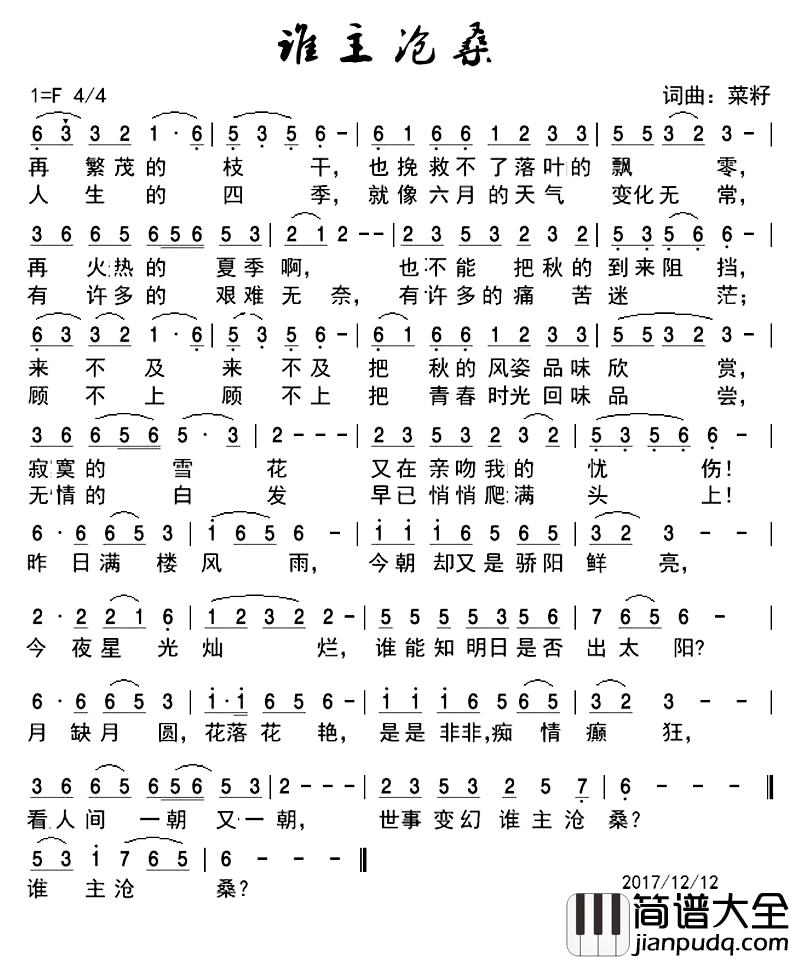 谁主沧桑
1=F 4/4 词曲：菜籽
6 3 3 2 1 · 6 | 5 3 5 6 - | 6 1 6 6 1 2 3 3 | 5 5 3 2 2 - |
再 繁茂的 枝 干，也挽救不了落叶的飘 零，
人 生 的 四 季，就像六月的天气 变化无 常，
3 6 6 5 6 5 6 5 3 | 2 1 2 - - | 2 3 5 3 2 3 5 5 | 5 3 5 5 5 - |
再 火热的 夏季啊， 也不能 把秋的到来阻 挡，
有 许多的 艰难无 奈，有许多的痛 苦迷 茫；
6 3 3 2 1 · 6 | 5 3 5 6 - | 6 1 6 6 1 2 3 3 | 5 5 3 2 2 - |
来 不 及 来 不及 把 秋的风姿品味欣 赏，
顾 不 上 顾 不上 把 青春时光回味品 尝，
3 6 6 6 5 6 5 · 3 | 2 - - - | 2 3 5 3 2 3 2 | 5 3 5 6 6 - |
寂寞的 雪 花 又在亲吻我的 忧 伤！
无情的 白 发 早已悄悄爬满 头 上！
6 · 6 6 6 5 3 | 1 6 5 6 - | 1 1 1 6 5 6 5 | 3 2 3 - - |
昨 日满 楼 风 雨， 今朝 却又是骄阳鲜 亮，
2 · 2 2 1 6 | 1 2 3 2 2 - | 5 5 5 5 3 5 6 | 7 6 5 6 - |
今 夜星 光 灿 烂，谁能知明日是否 出太 阳？
6 · 6 6 6 5 3 | 1 · 1 6 5 6 - | 1 1 1 6 5 6 5 | 3 2 3 - - |
月 缺月 圆，花落花 艳，是是非非，痴情癫 狂，
3 6 6 6 5 6 5 6 5 3 | 2 - - - | 2 3 5 3 2 5 7 | 6 - - - ‖
看人间 一朝又一朝， 世事变幻谁主沧 桑？
5 3 1 7 6 5 | 6 - - - ‖
谁 主沧 桑？
2017/12/12
简谱大全
jianpudq.com